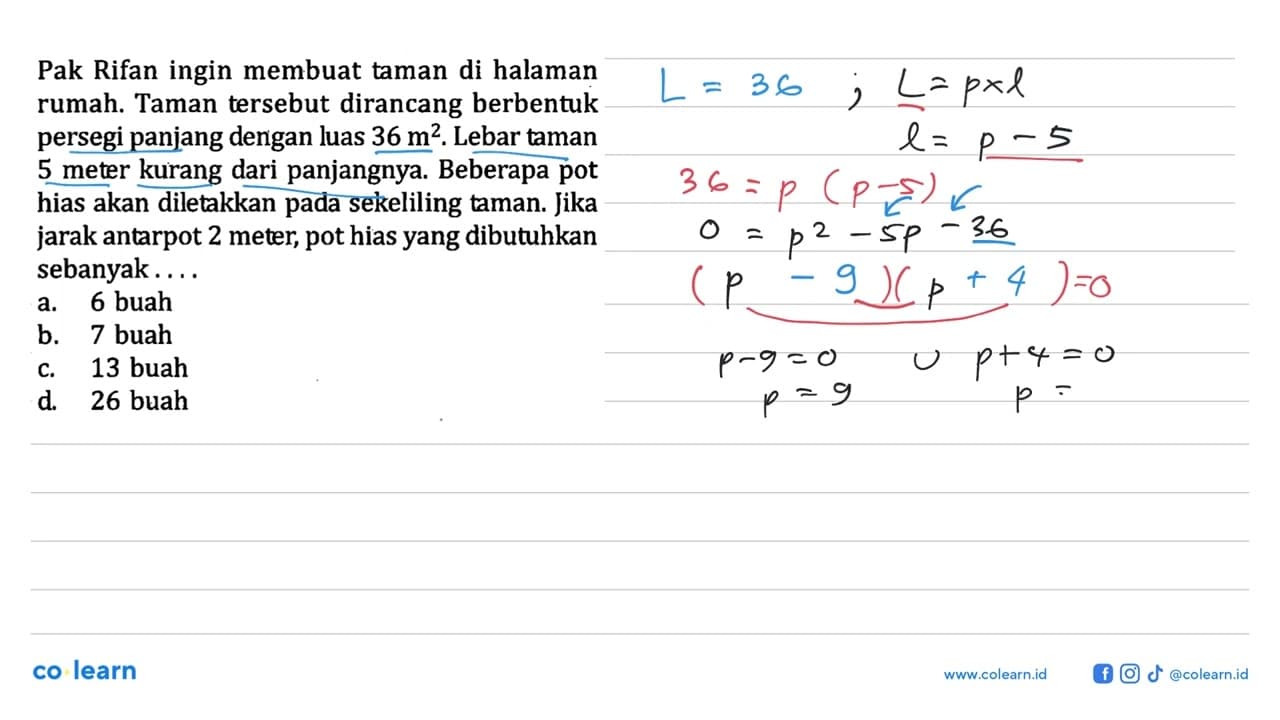 Pak Rifan ingin membuat taman di halaman
rumah. Taman tersebut dirancang berbentuk
persegi panjang dengan luas 36 m². Lebar taman
5 meter kurang dari panjangnya. Beberapa pot
hias akan diletakkan pada sekeliling taman. Jika
jarak antarpot 2 meter, pot hias yang dibutuhkan
sebanyak . . . .
a. 6 buah
b. 7 buah
c. 13 buah
d. 26 buah
L = 36 ; L = p×l
l = p - 5
36 = p (p-5)
0 = p² - 5p - 36
(p - 9)(p + 4) = 0
p-9=0 ∪ p+4=0
p = 9 p =
co learn
www.colearn.id @colearn.id